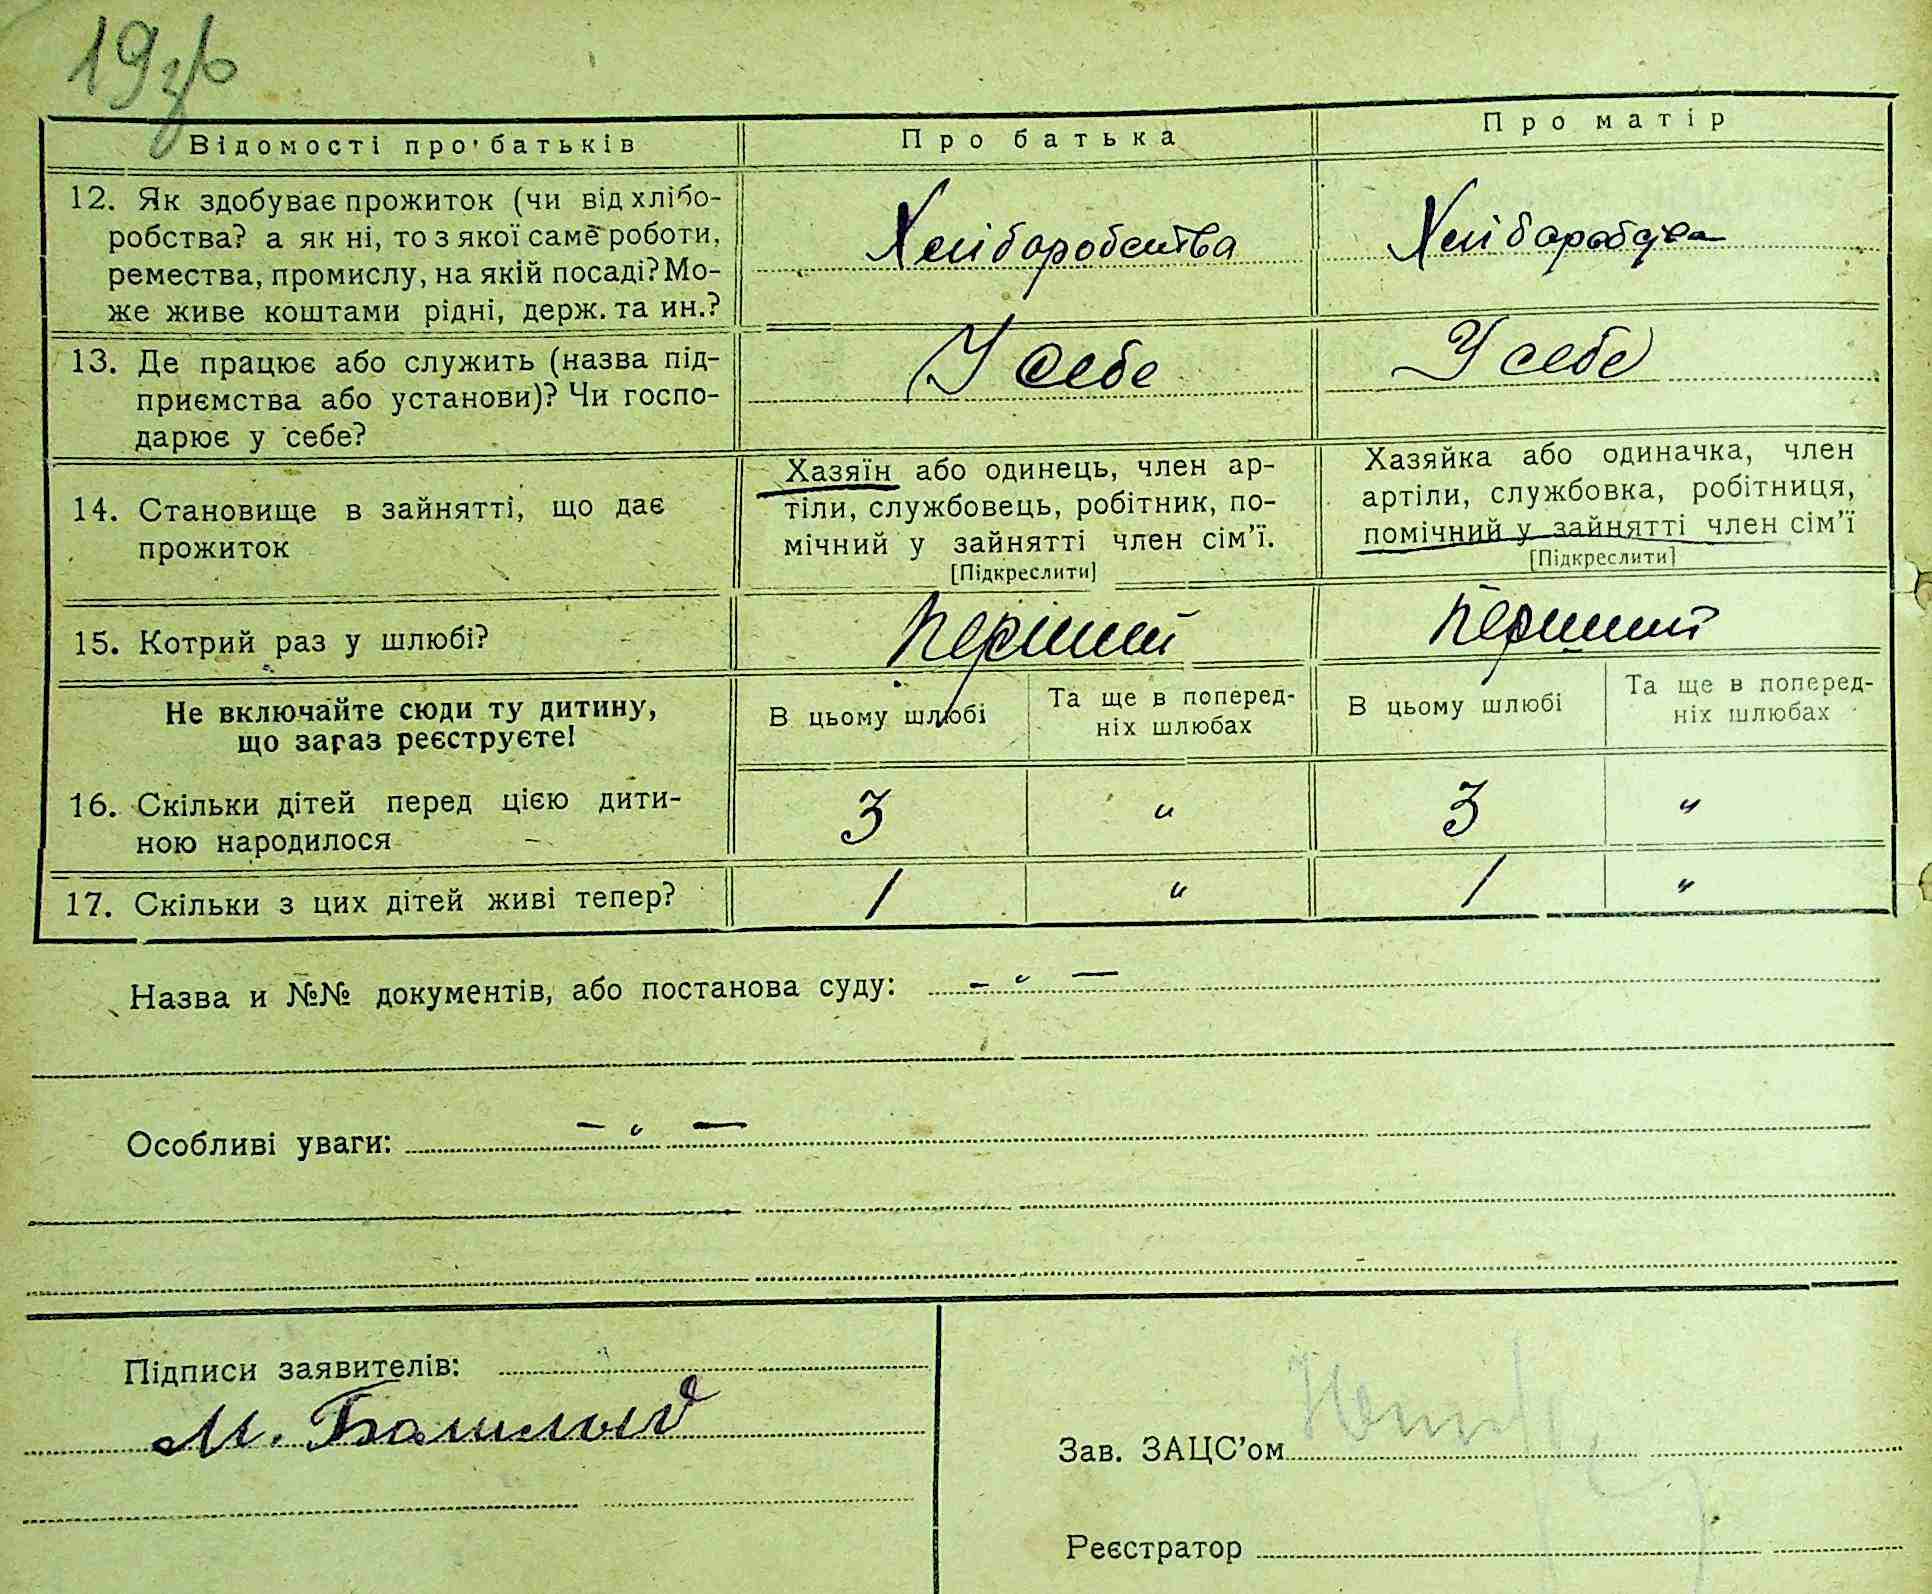 19зв
Відомості про батьків
Про батька
Про матір
12. Як здобуває прожиток (чи від хлібо-
робства? а як ні, то з якої саме роботи,
ремества, промислу, на якій посаді? Мо-
же живе коштами рідні, держ. та ин.?
Хліборобства
Хліборобства
13. Де працює або служить (назва під-
приємства або установи)? Чи госпо-
дарює у себе?
У себе
У себе
14. Становище в зайнятті, що дає
прожиток
Хазяїн або одинець, член ар-
тіли, службовець, робітник, по-
мічний у зайнятті член сім'ї.
[Підкреслити]
Хазяйка або одиначка, член
артіли, службовка, робітниця,
помічний у зайнятті член сім'ї
[Підкреслити]
15. Котрий раз у шлюбі?
Перший
Перший
Не включайте сюди ту дитину,
що зараз реєструєте!
В цьому шлюбі
Та ще в поперед-
ніх шлюбах
В цьому шлюбі
Та ще в поперед-
ніх шлюбах
16. Скільки дітей перед цією дити-
ною народилося
3 " 3 "
17. Скільки з цих дітей живі тепер?
1 " 1 "
Назва и №№ документів, або постанова суду: - " -
Особливі уваги: - " -
Підписи заявителів:
М.
Зав. ЗАЦС'ом
Реєстратор